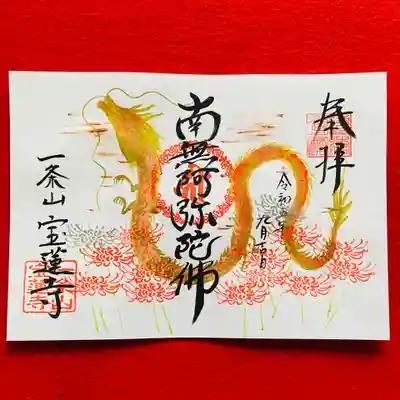 奉拝
令和六年
九月吉日
南無阿弥陀佛
一条山 宝蓮寺